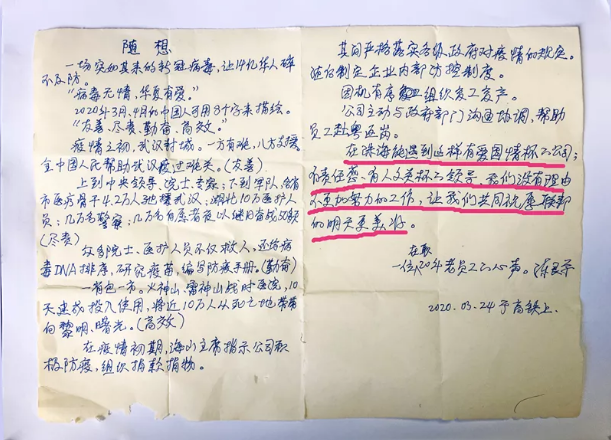 随 想
一场突如其来的新冠病毒，让14亿华人猝
不及防。
"病毒无情，华夏有爱。"
2020年3月、4月的中国人可用8个字来描绘。
"友善、尽责、勤奋、高效。"
疫情之初，武汉封城。一方有难，八方支援
全中国人民帮助武汉度过难关。（友善）
上到中央领导，院士、专家；下到军队、各省
市医疗骨干4.2万人驰援武汉，湖北10万医护人
员；几万名警察；几万名志愿者夜以继日奋战
（尽责）
众多院士、医护人员不仅救人，还给病
毒DNA排序，研究疫苗，编写防疫手册。（勤奋）
一省包一市。火神山、雷神山战时医院，10
天建成投入使用，将近10万人从死亡地带带
向黎明、曙光。（高效）
在疫情初期，海山主席指示公司积
极防疫，组织捐款捐物。
其间严格落实各级政府对疫情的规定。
适时制定企业内部防控制度。
因机有序 组织复工复产。
公司主动与政府部门沟通协调，帮助
员工赴粤返岗。
在深海能遇到这样有爱国情怀的公司；
有责任感、有人文关怀的领导，我们没有理由
不更加努力的工作，让我们共同祝愿
的明天更美好。
在职
一位20年老员工的心声。
2020.03.24于高铁上.